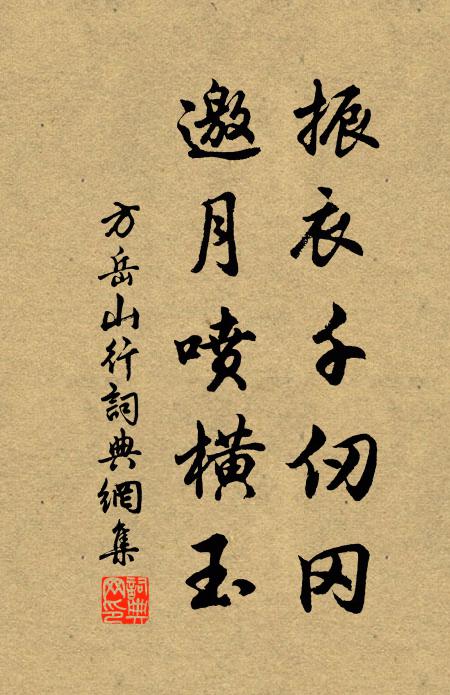 振衣千仞冈
邀月喷横玉
方岳山行詞典網集
詞典網印